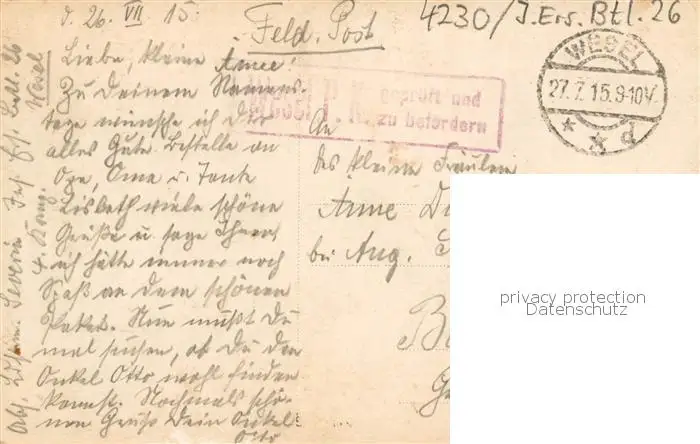 d. 26. VII 15.
Feld-Post
4230/J.Ers.Btl. 26
WESEL
27.7.15.9-10V.
* * d
geprüft und
zu befördern
P. K.
Liebe, kleine Anne!
Zu Deinem Namens-
tage wünsche ich Dir
alles Gute. Bestelle an
Opa, Oma u. Tante
Lisbeth viele schöne
Grüße u. sage Ihnen,
ich hätte immer noch
Spaß an dem schönen
Paket. Nun mußt Du
mal suchen, ob Du den
Onkel Otto wohl finden
kannst. Nochmals schö-
nen Gruß Dein Onkel
Otto
An
das kleine Fräulein
Anne
bei Aug.
Abs. Severin Inf. Ers. Batl. 26
4. Komp. Wesel
privacy protection
Datenschutz